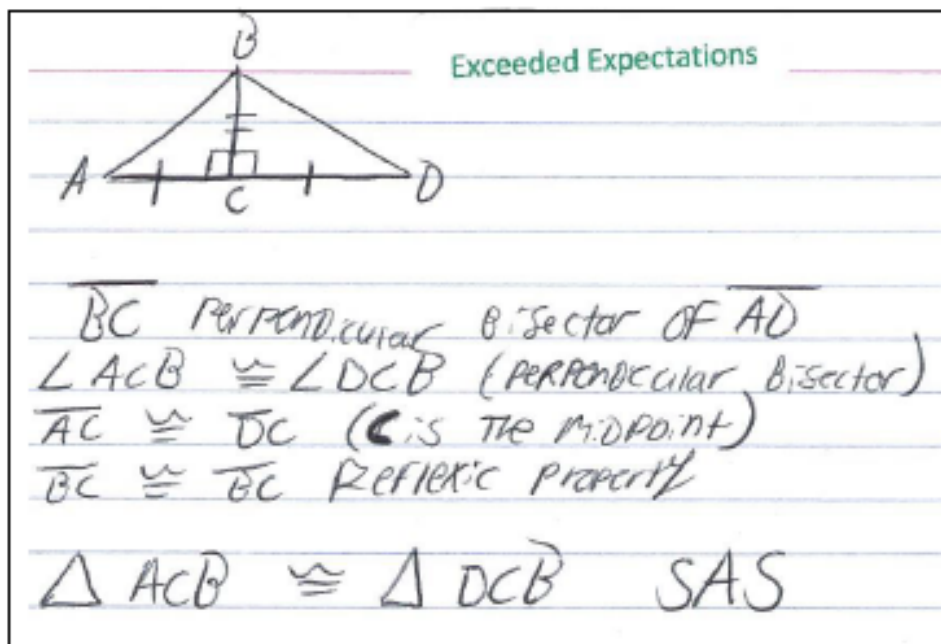 B
Exceeded Expectations
A C D
BC Perpendicular Bisector of AD
∠ACB ≅ ∠DCB (perpendicular Bisector)
AC ≅ DC (C is the midpoint)
BC ≅ BC Reflexic property
△ ACB ≅ △ DCB SAS